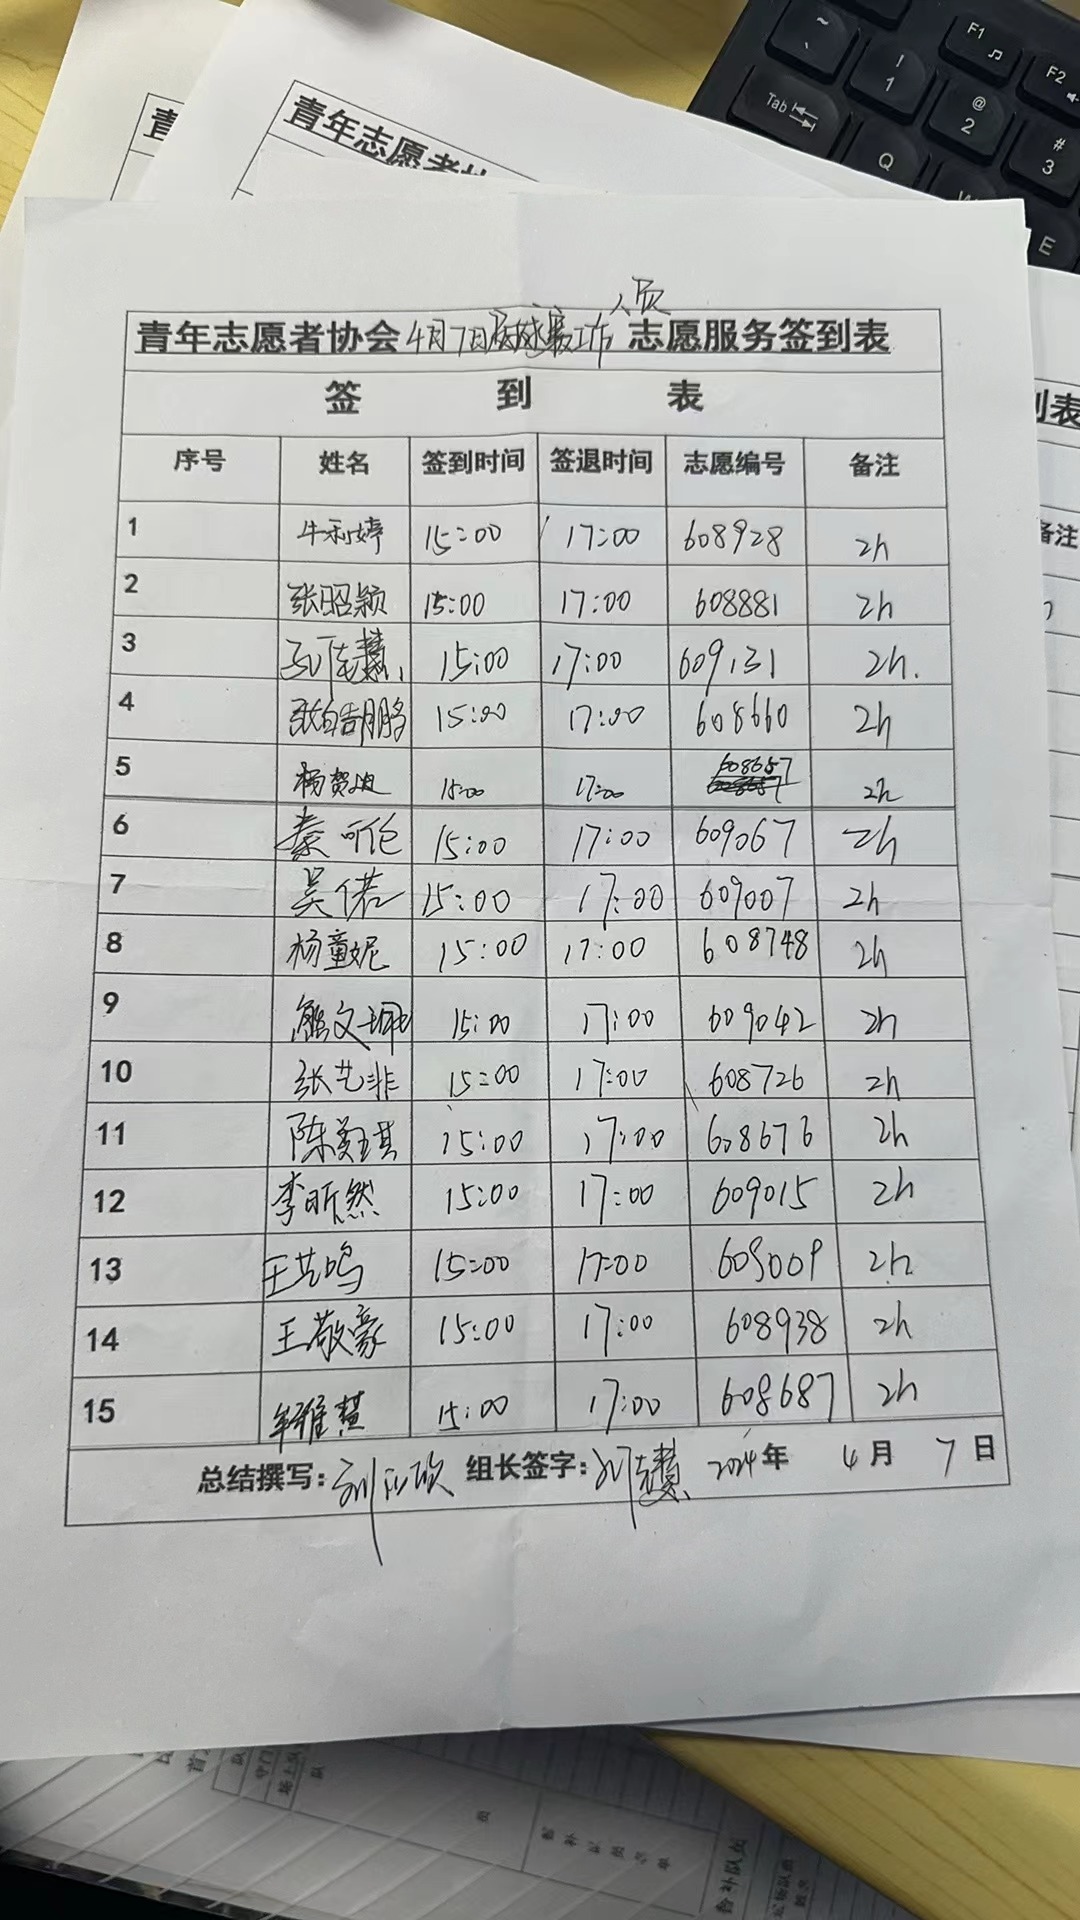 ~
`
!
1
@
2
#
3
F1
F2
Tab
Q
W
E
青
青年志愿者协
青年志愿者协会4月7日篮球赛工作人员志愿服务签到表
签 到 表
序号 姓名 签到时间 签退时间 志愿编号 备注
1 牛利婷 15:00 17:00 608928 2h
2 张昭颖 15:00 17:00 608881 2h
3 15:00 17:00 609131 2h.
4 张皓鹏 15:00 17:00 608660 2h
5 杨贺 15:00 17:00 608657 2h
6 秦可伦 15:00 17:00 609067 2h
7 吴偌 15:00 17:00 609007 2h
8 杨童妮 15:00 17:00 608748 2h
9 熊文珊 15:00 17:00 609042 2h
10 张艺非 15:00 17:00 608726 2h
11 陈美琪 15:00 17:00 608676 2h
12 李昕然 15:00 17:00 609015 2h
13 王艺鸣 15:00 17:00 609009 2h
14 王敬豪 15:00 17:00 608938 2h
15 牟雅慧 15:00 17:00 608687 2h
总结撰写: 组长签字: 2024年 4月 7日
到表
备注
替补队员